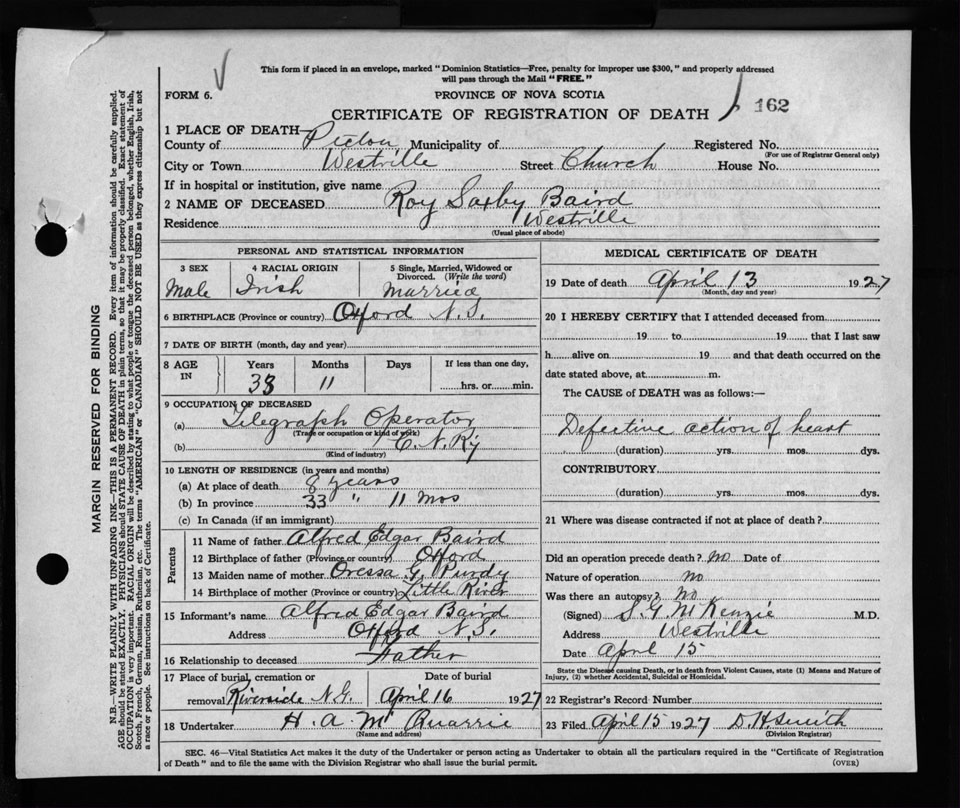 This form if placed in an envelope, marked "Dominion Statistics—Free, penalty for improper use $300," and properly addressed
will pass through the Mail "FREE."
FORM 6.
PROVINCE OF NOVA SCOTIA
CERTIFICATE OF REGISTRATION OF DEATH
162
1 PLACE OF DEATH—
County of Pictou Municipality of Registered No.
(For use of Registrar General only)
City or Town Westville Street Church House No.
If in hospital or institution, give name
2 NAME OF DECEASED Roy Saxby Baird
Residence Westville
(Usual place of abode)
MARGIN RESERVED FOR BINDING
N.B.—WRITE PLAINLY WITH UNFADING INK—THIS IS A PERMANENT RECORD. Every item of information should be carefully supplied.
AGE should be stated EXACTLY. PHYSICIANS should STATE CAUSE OF DEATH in plain terms, so that it may be properly classified. Exact statement of
OCCUPATION is very important. RACIAL ORIGIN will be described by stating to what people or tongue the deceased person belonged, whether English, Irish,
Scotch, French, German, Russian, Ruthenian, etc. The terms "AMERICAN" or "CANADIAN" SHOULD NOT BE USED as they express citizenship but not
a race or people. See instructions on back of Certificate.
PERSONAL AND STATISTICAL INFORMATION
3 SEX
Male
4 RACIAL ORIGIN
Irish
5 Single, Married, Widowed or
Divorced. (Write the word)
Married
6 BIRTHPLACE (Province or country) Oxford N.S.
7 DATE OF BIRTH (month, day and year)
8 AGE
IN
Years
33
Months
11
Days
If less than one day,
hrs. or min.
9 OCCUPATION OF DECEASED
(a) Telegraph Operator
(Trade or occupation or kind of work)
(b) C. N. Ry
(Kind of industry)
10 LENGTH OF RESIDENCE (in years and months)
(a) At place of death 8 years
(b) In province 33 " 11 Mos
(c) In Canada (if an immigrant)
Parents
11 Name of father Alfred Edgar Baird
12 Birthplace of father (Province or country) Oxford
13 Maiden name of mother Oressa G. Purdy
14 Birthplace of mother (Province or country) Little River
15 Informant's name Alfred Edgar Baird
Address Oxford N.S.
16 Relationship to deceased Father
17 Place of burial, cremation or
removal Riverside N.G.
Date of burial
April 16 1927
18 Undertaker H. A. McQuarrie
(Name and address)
MEDICAL CERTIFICATE OF DEATH
19 Date of death April 13 1927
(Month, day and year)
20 I HEREBY CERTIFY that I attended deceased from
19 to 19 that I last saw
h alive on 19 and that death occurred on the
date stated above, at m.
The CAUSE of DEATH was as follows:—
Defective action of heart
(duration) yrs. mos. dys.
CONTRIBUTORY
(duration) yrs. mos. dys.
21 Where was disease contracted if not at place of death?
Did an operation precede death? No Date of
Nature of operation no
Was there an autopsy? No
(Signed) S. G. McKenzie M.D.
Address Westville
Date April 15
State the Disease causing Death, or in death from Violent Causes, state (1) Means and Nature of
Injury, (2) whether Accidental, Suicidal or Homicidal.
22 Registrar's Record Number
23 Filed April 15 1927 D. H. Smith
(Division Registrar)
SEC. 46—Vital Statistics Act makes it the duty of the Undertaker or person acting as Undertaker to obtain all the particulars required in the "Certificate of Registration
of Death" and to file the same with the Division Registrar who shall issue the burial permit.
(OVER)